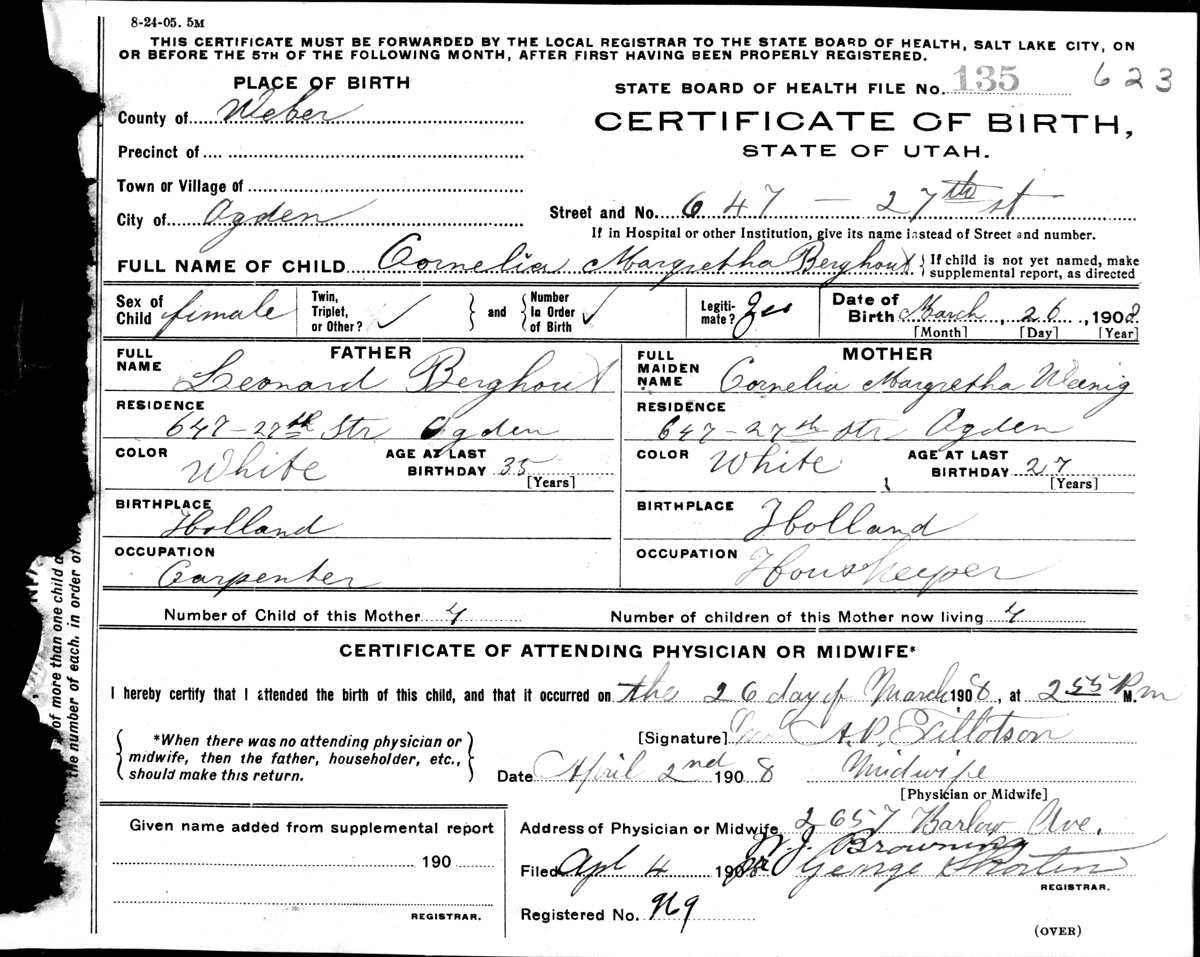 8-24-05. 5M
THIS CERTIFICATE MUST BE FORWARDED BY THE LOCAL REGISTRAR TO THE STATE BOARD OF HEALTH, SALT LAKE CITY, ON
OR BEFORE THE 5TH OF THE FOLLOWING MONTH, AFTER FIRST HAVING BEEN PROPERLY REGISTERED.
PLACE OF BIRTH
STATE BOARD OF HEALTH FILE No. 135 623
County of Weber
CERTIFICATE OF BIRTH,
Precinct of
STATE OF UTAH.
Town or Village of
City of Ogden
Street and No. 647 — 27th st
If in Hospital or other Institution, give its name instead of Street and number.
FULL NAME OF CHILD Cornelia Margretha Berghout } If child is not yet named, make
supplemental report, as directed
Sex of Child female
Twin, Triplet, or Other? ✓ } and { Number In Order of Birth ✓
Legiti-mate? Yes
Date of Birth March, 26, 1908
[Month] [Day] [Year]
FATHER
FULL NAME Leonard Berghout
RESIDENCE
647-27th Str Ogden
COLOR White
AGE AT LAST BIRTHDAY 35
[Years]
BIRTHPLACE
Holland
OCCUPATION
Carpenter
MOTHER
FULL MAIDEN NAME Cornelia Margretha Weenig
RESIDENCE
647-27th str Ogden
COLOR White
AGE AT LAST BIRTHDAY 27
[Years]
BIRTHPLACE Holland
OCCUPATION Houskeeper
Number of Child of this Mother 4
Number of children of this Mother now living 4
CERTIFICATE OF ATTENDING PHYSICIAN OR MIDWIFE*
I hereby certify that I attended the birth of this child, and that it occurred on the 26 day of March 1908, at 2 55 P.M. m
{ *When there was no attending physician or
midwife, then the father, householder, etc.,
should make this return. }
[Signature] A.P. Tillotson
Date April 2nd 1908 Midwife
[Physician or Midwife]
Given name added from supplemental report
190
REGISTRAR.
Address of Physician or Midwife 2657 Barlow Ave.
W. J. Browning
Filed Apl 4 1908 George Shorten
REGISTRAR.
Registered No.
(OVER)
of more than one child a
the number of each, in order of